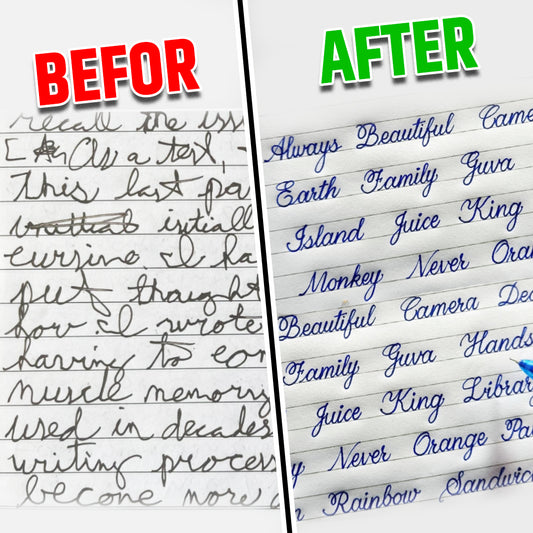 BEFOR
recall the iss
[ As a test,
This last pa
initiall
cursine. I ha
put thought
how I wrote
having to con
muscle memory
used in decades
writing process
become more
AFTER
Always Beautiful Came
Earth Family Guva
Island Juice King
Monkey Never Oran
Beautiful Camera Dec
Family Guva Hands
Juice King Librar
y Never Orange Pa
n Rainbow Sandwic